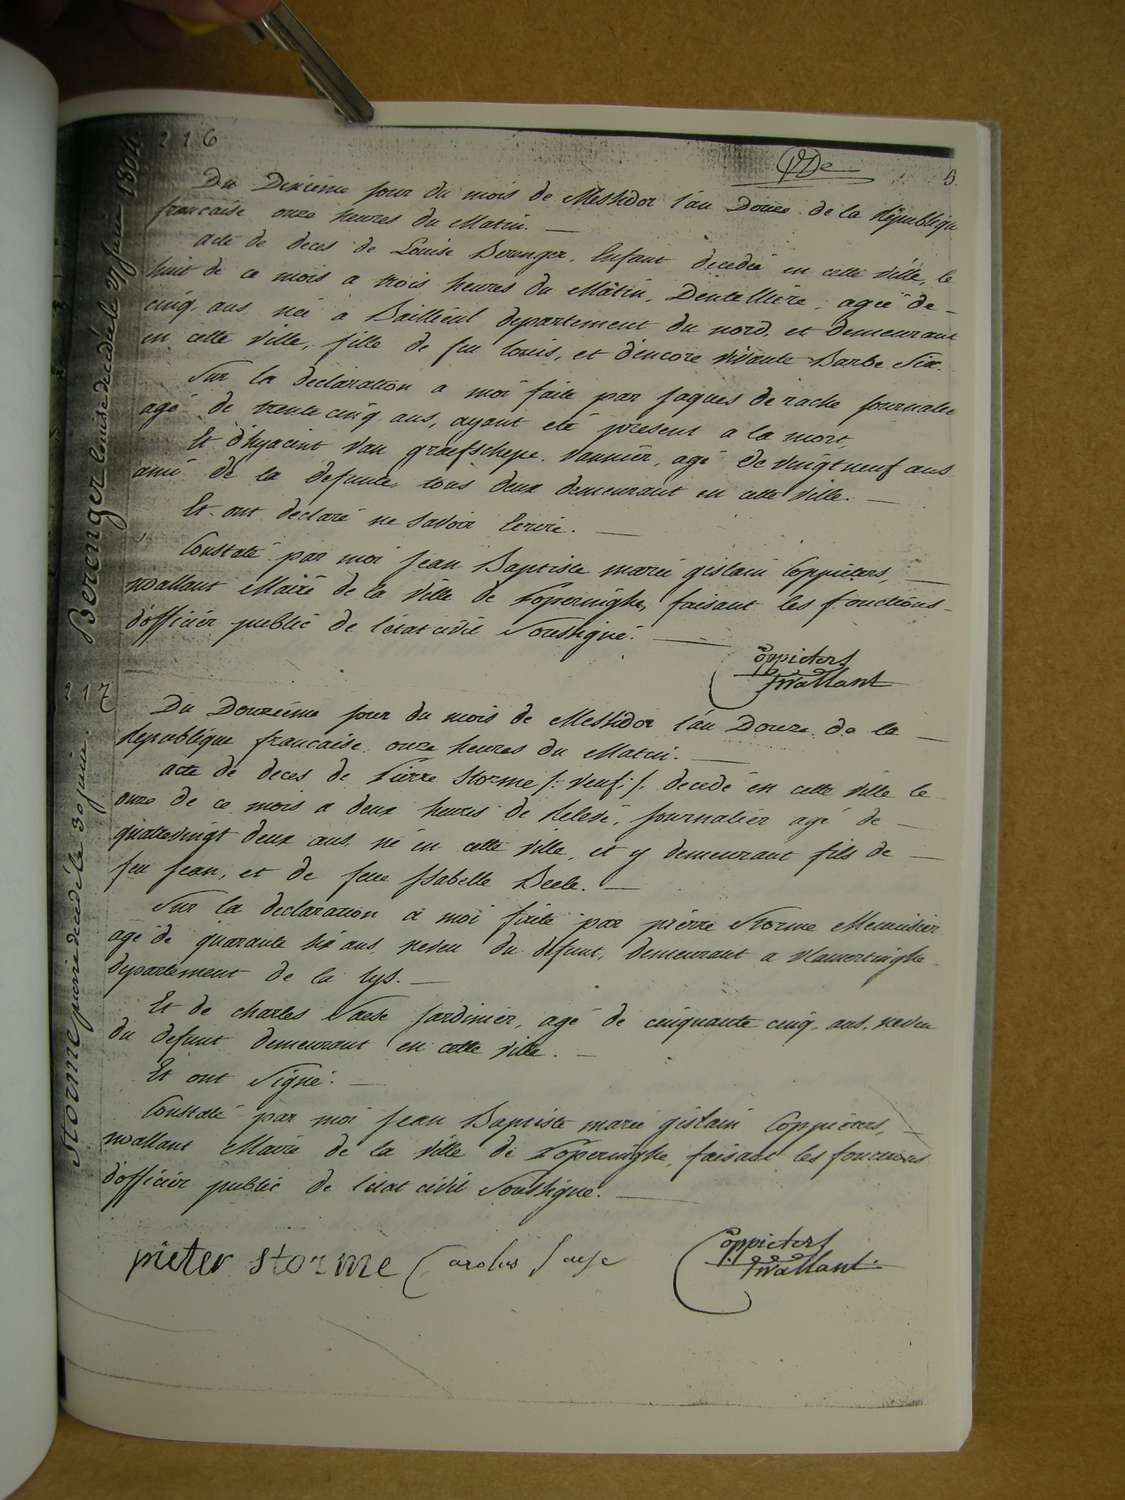 216
5.
Du Dixiéme jour du mois de Messidor l'an Douze de la République
française onze heures du Matin. —
acte de deces de Louise Berenger, Enfant decedée en cette ville, le
huit de ce mois a trois heures du Mâtin, Dentellière, ageé de —
cinq ans, née à Bailleul departement du nord, et demeurant
en cette ville, fille de feu Louis, et d'encore vivante Barbe Six.
Sur la declaration a moi faite par Jaques derache Journalier
agé de trente cinq ans, ayant été present a la mort
Et d'hyacint Van graefschepe. Vannier, agé de vingt neuf ans
ami de la defunte tous deux demeurant en cette ville. —
Et ont declaré ne savoir Ecrire. —
Constaté par moi Jean Baptiste marie gislain Coppieters, —
wallant Maire de la ville de Poperinghe, faisant les fonctions
d'officier public de l'état civil Soussigné. —
Coppieters
Wallant
Berenger louise decédé le 27 juin 1804
217
Du Douzième jour du mois de Messidor l'an Douze de la —
République française onze heures du Matin. —
acte de deces de Pierre Storme /: veuf :/ decedé en cette ville le
onze de ce mois a deux heures de Relevé, journalier agé de —
quatrevingt deux ans, né en cette ville, et y demeurant fils de —
feu Jean, et de feue Isabelle Beele. —
Sur la declaration a moi faite par pierre Storme Menuisier
agé de quarante six ans, neveu du defunt, demeurant a Vlamertinghe
departement de la Lys. —
Et de charles Saese Jardinier, agé de cinquante cinq ans, neveu
du defunt demeurant en cette ville. —
Et ont Signé. —
Constaté par moi Jean Baptiste marie gislain Coppieters, —
wallant Maire de la ville de Poperinghe, faisant les fonctions
d'officier public de l'état civil Soussigné. —
pieter storme Carolus Saese
Coppieters
Wallant.
Storme pierre decédé le 30 juin